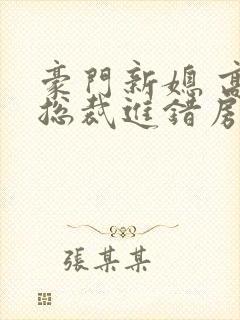 豪門新媳 高
總裁進錯房
張某某